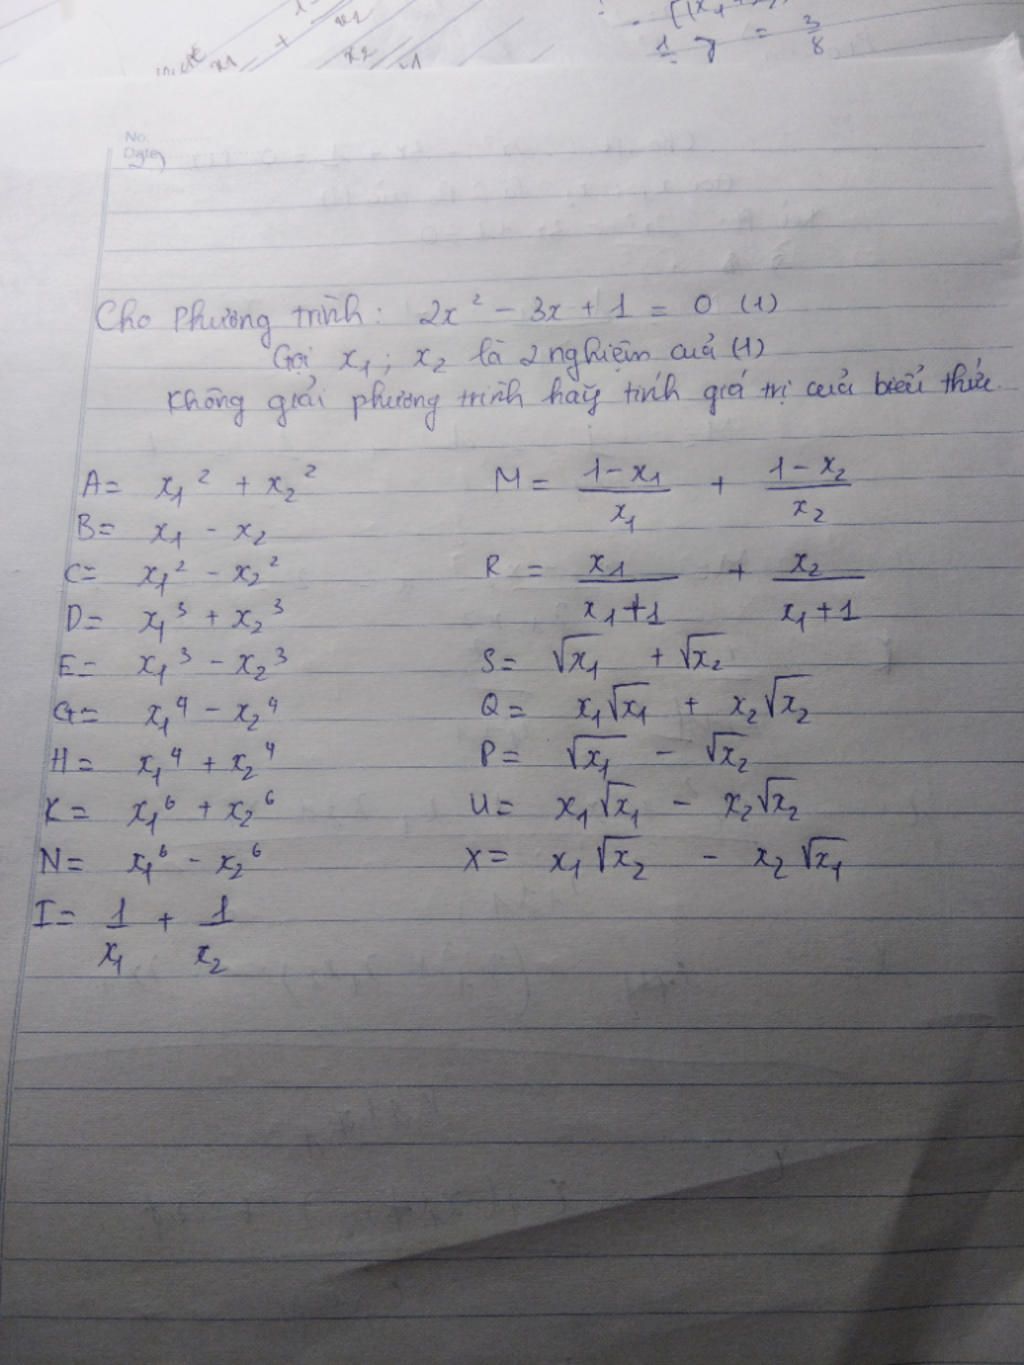 x₁ + x₂
1/x₂ = 3/8
No.
Date
Cho Phương trình: 2x² - 3x + 1 = 0 (1)
Gọi x₁; x₂ là 2 nghiệm của (1)
Không giải phương trình hãy tính giá trị của biểu thức
A = x₁² + x₂²
B = x₁ - x₂
C = x₁² - x₂²
D = x₁³ + x₂³
E = x₁³ - x₂³
G = x₁⁴ - x₂⁴
H = x₁⁴ + x₂⁴
K = x₁⁶ + x₂⁶
N = x₁⁶ - x₂⁶
I = 1/x₁ + 1/x₂
M = (1-x₁)/x₁ + (1-x₂)/x₂
R = x₁/(x₁+1) + x₂/(x₁+1)
S = √x₁ + √x₂
Q = x₁√x₁ + x₂√x₂
P = √x₁ - √x₂
U = x₁√x₁ - x₂√x₂
X = x₁√x₂ - x₂√x₁